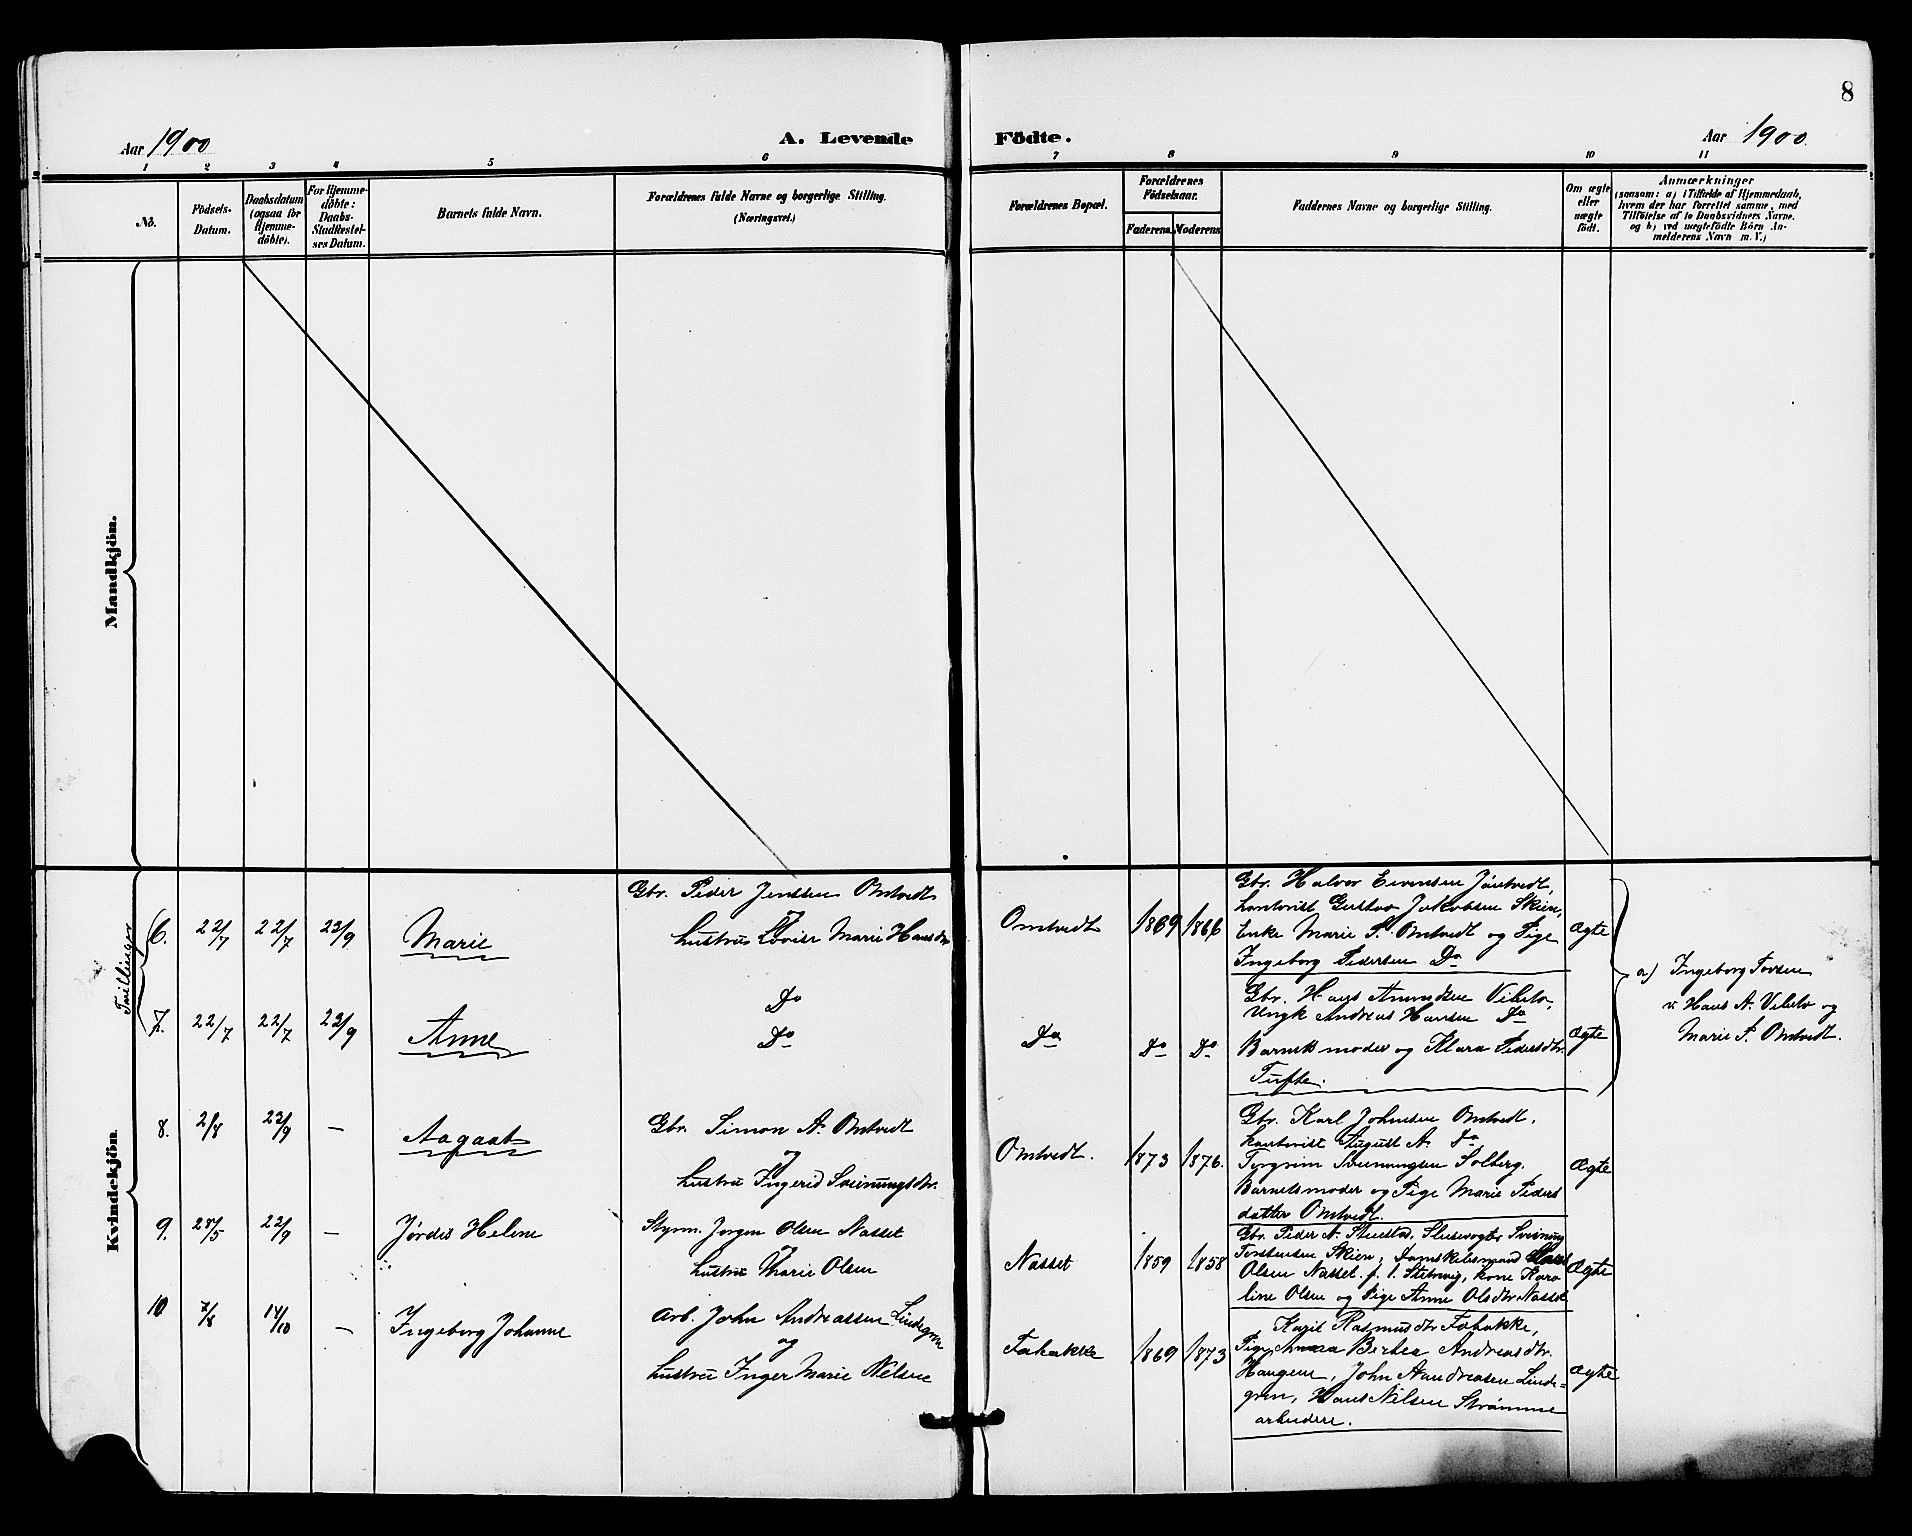 8
Aar 1900
A. Levende
Födte.
Aar 1900.
1 2 3 4 5 6 7 8 9 10 11
No.
Födsels-
Datum.
Daabsdatum
(ogsaa for
Hjemme-
döbte).
For Hjemme-
döbte:
Daabs-
Stadfæstel-
ses Datum.
Barnets fulde Navn.
Forældrenes fulde Navne og borgerlige Stilling.
(Næringsvei.)
Forældrenes Bopæl.
Forældrenes
Födselsaar.
Faderens.
Moderens
Faddernes Navne og borgerlige Stilling.
Om ægte
eller
uægte
födt.
Anmærkninger
(saasom: a) i Tilfælde af Hjemmedaab,
hvem der har forrettet samme, med
Tilföielse af to Daabsvidners Navne,
og b) ved uægtefödte Börn An-
melderens Navn m. V.)
Mandkjön.
Kvindekjön
Tvillinger
6.
22/7
22/7
23/9
Marie
Gbr. Peder Jenssen Omtvedt
og
hustru Lovise Marie Hansdtr
Omtvedt
1869
1866
Gbr. Halvor Evensen Jöntvedt,
kontorist Gustav Jakobsen Skien,
Enke Marie P. Omtvedt og Pige
Ingeborg Pedersen Do
Ægte
7.
22/7
22/7
23/9
Anne
Do
Do
Do
Do
Do
Gbr. Hans Amundsen
Ungk Andreas Hansen Do
Barnets moder og Klara Pedersdtr.
Tufte.
Ægte
a) Ingeborg Tovsen
v. Hans A. og
Marie P. Omtvedt.
8.
2/8
23/9
—
Aagaat
Gbr. Simon A. Omtvedt
og
hustru Ingerid Sveinungsdtr.
Omtvedt.
1873
1876.
Gbr. Karl Johnsen Omtvedt.
kontorist August A. Do
Torgrim Sveinungsen Solberg.
Barnetsmoder og Pige Marie Peders
datter Omtvedt.
Ægte
9.
28/5
23/9
—
Jørdis Helene
Styrm. Jørgen Olsen Nasset
og
hustru Marie Olsen
Nasset
1859
1858
Gbr. Peder N. Slusevogter Sveinung
Torstensen Skien,
Olsen Nasset. f. t. kone Karo
line Olsen og Pige Anne Olsdtr Nasset
Ægte
10
7/8
14/10
—
Ingeborg Johanne
Arb. John Andreassen Lindegren
og
hustru Inger Marie Nelsen
Fabakke
1869
1873
Rasmusdtr Fabakke,
Pige Anna Birtea Andreasdtr.
Haugene, John Aandreasen Linde=
gren, Hans Nilsen Strömme
arbeidere.
Ægte